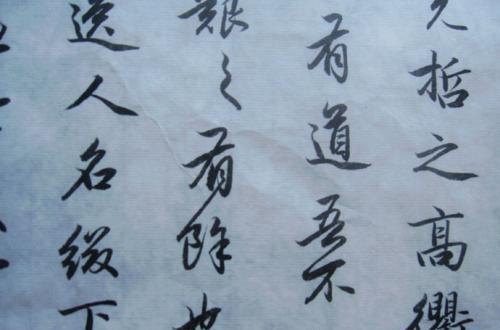 哲之高
有道吾不
之有餘也
人名綴下